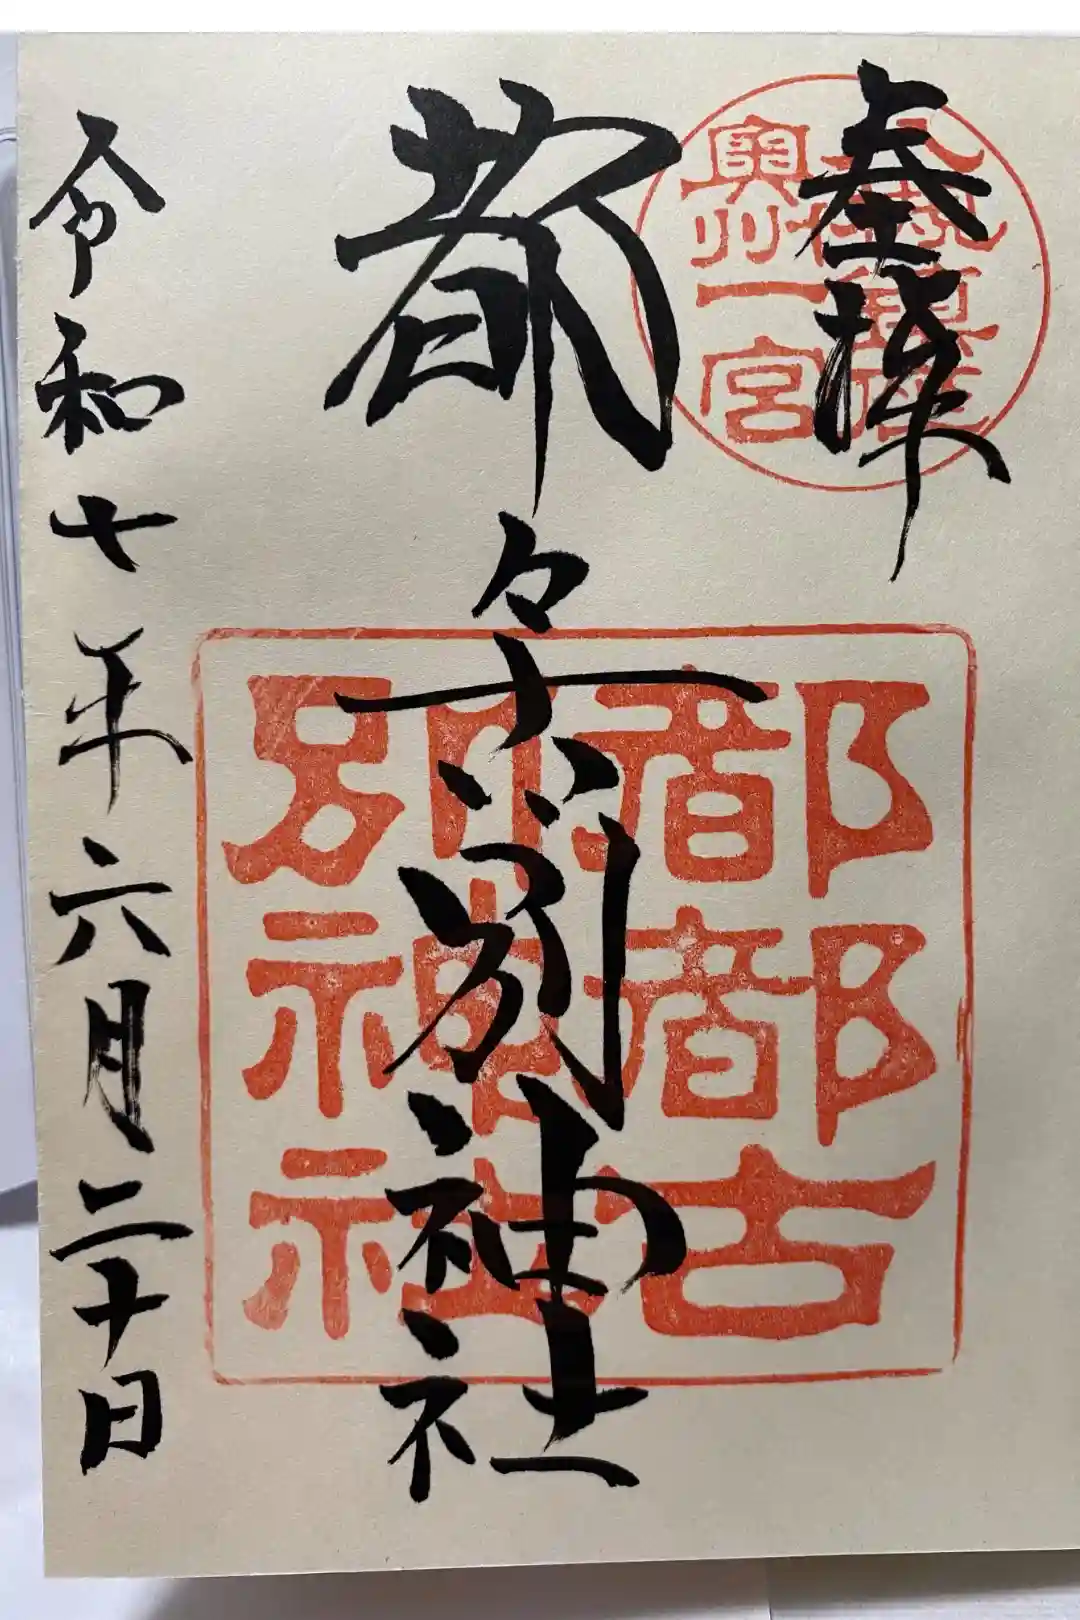 奉拝
八槻鎮座
奥州一宮
都々古別神社
都都古
別神社
令和七年六月二十日